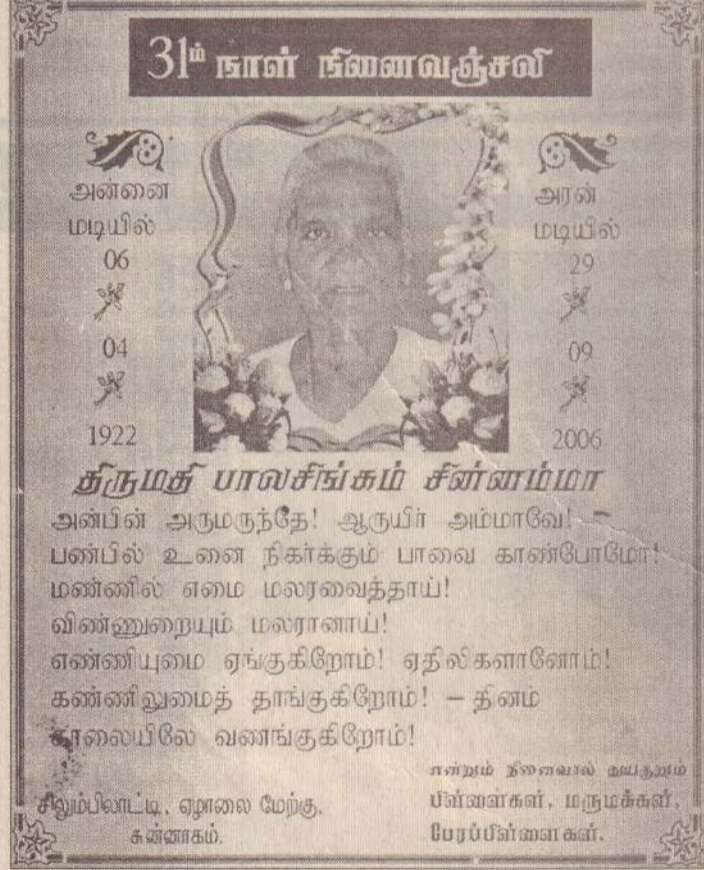 31ம் நாள் நினைவஞ்சலி
அன்னை
மடியில்
06
04
1922
அரன்
மடியில்
29
09
2006
திருமதி பாலசிங்கம் சின்னம்மா
அன்பின் அருமருந்தே! ஆருயிர் அம்மாவே! –
பண்பில் உனை நிகர்க்கும் பாவை காண்போமோ!
மண்ணில் எமை மலரவைத்தாய்!
விண்ணுறையும் மலரானாய்!
எண்ணியுமை ஏங்குகிறோம்! ஏதிலிகளானோம்!
கண்ணிலுமைத் தாங்குகிறோம்! – தினம்
காலையிலே வணங்குகிறோம்!
என்றும் நினைவால் துயருறும்
பிள்ளைகள், மருமக்கள்,
பேரப்பிள்ளைகள்.
சிலும்பிலாட்டி, ஏழாலை மேற்கு,
சுன்னாகம்.